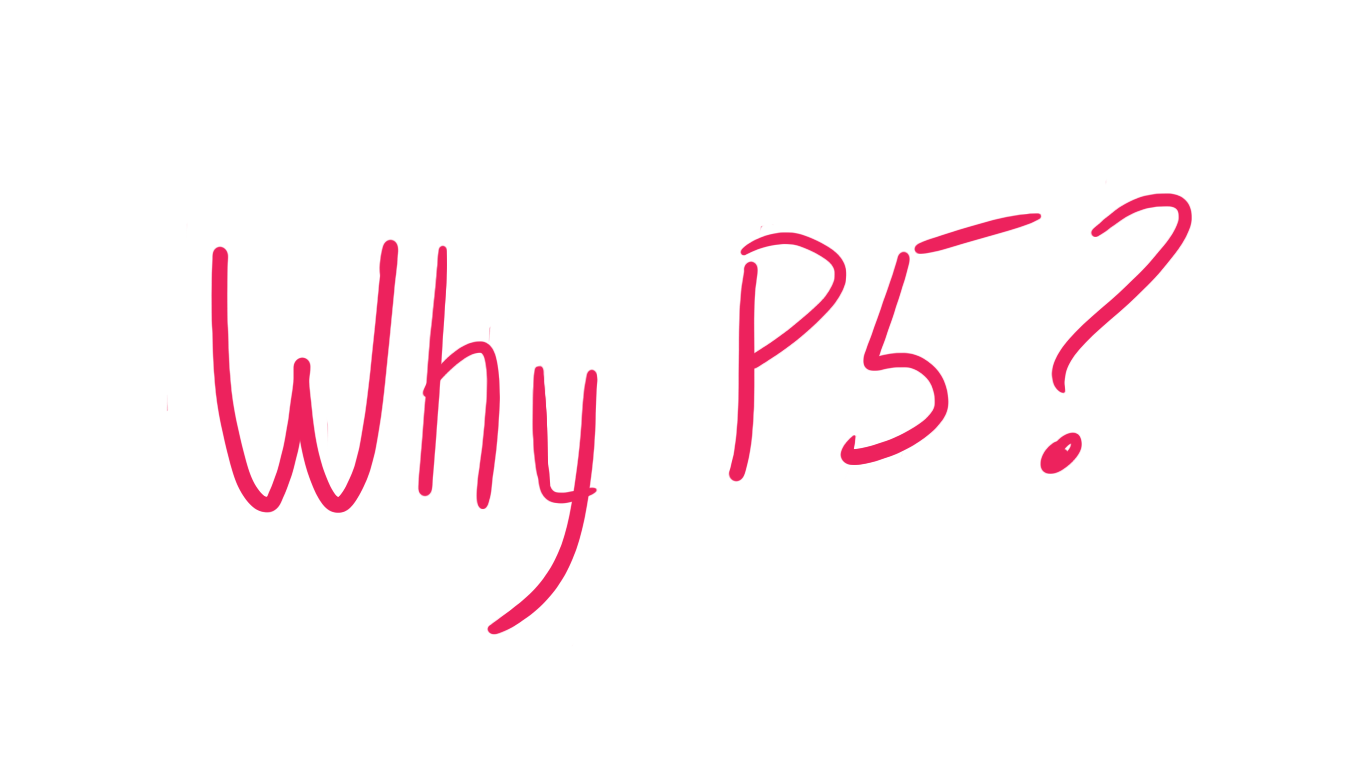 Why P5?